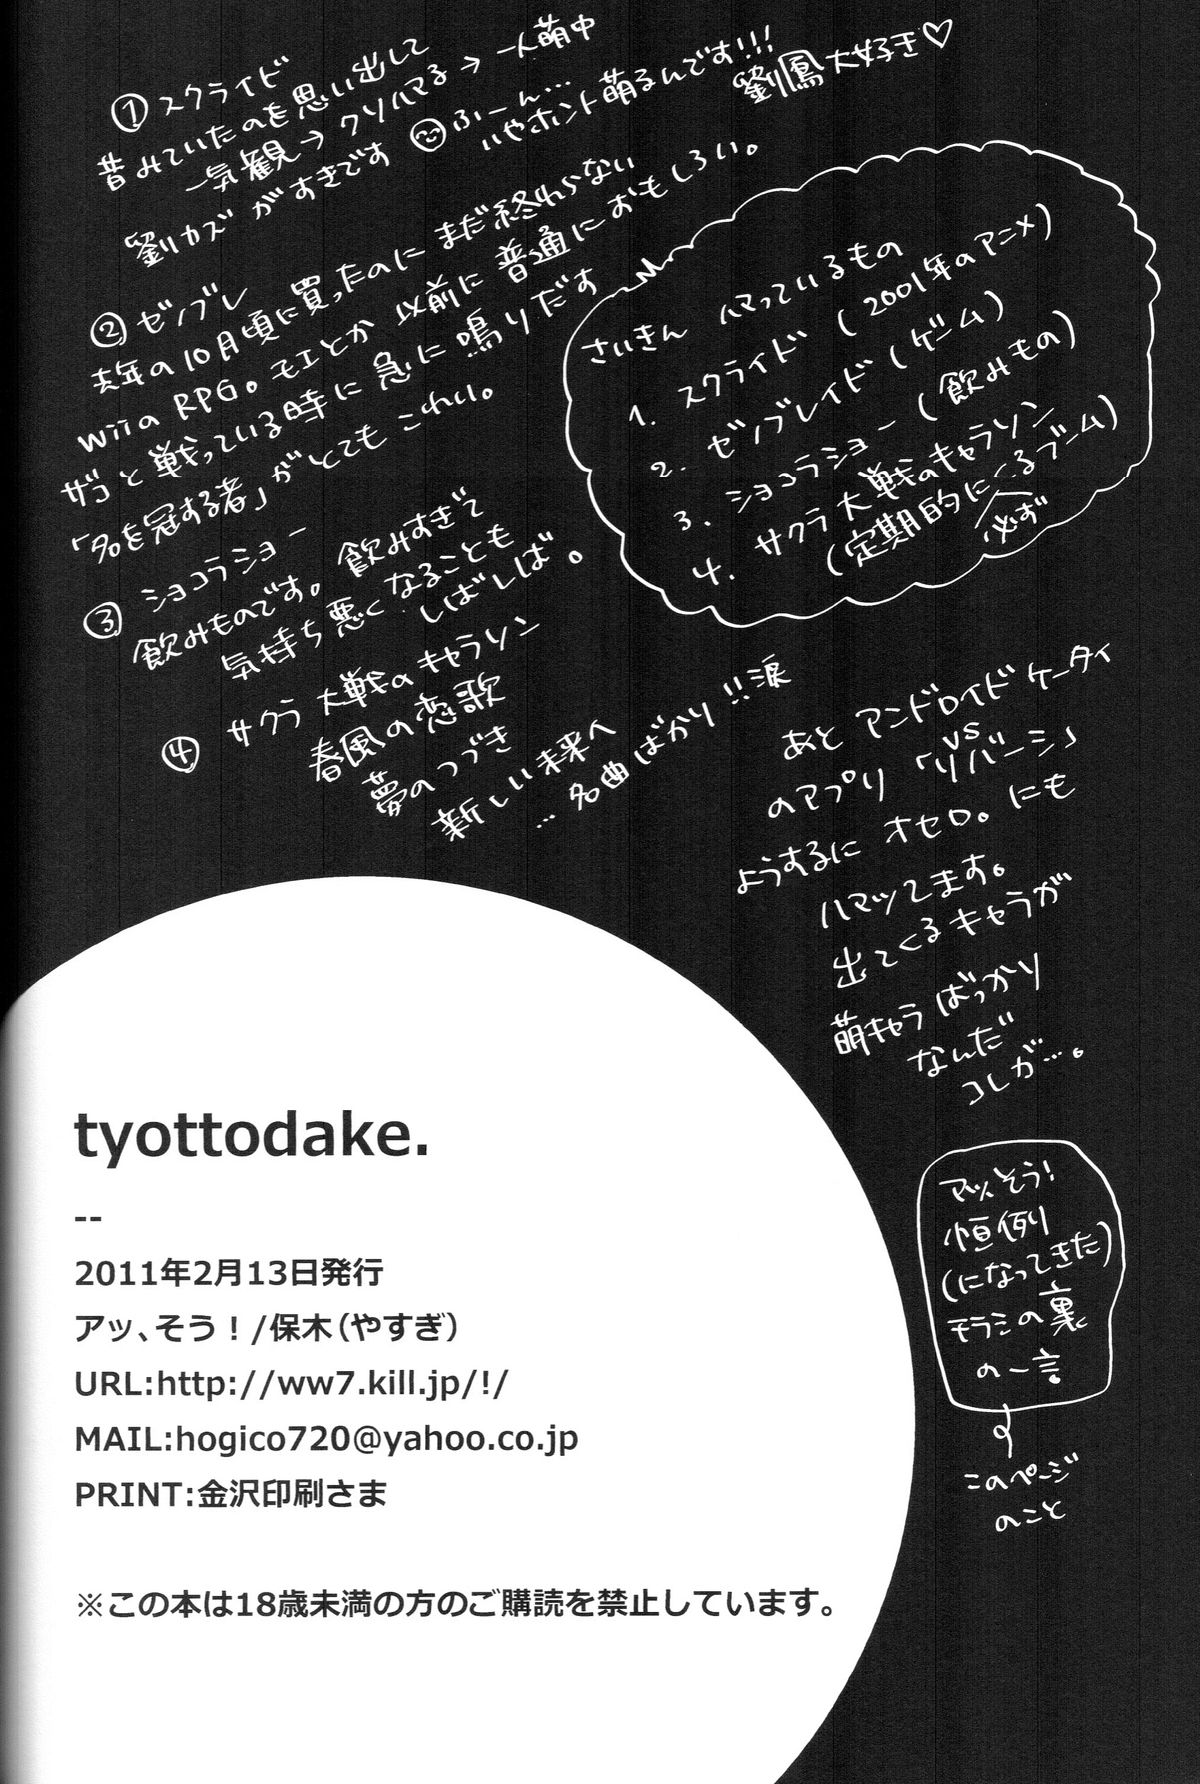 ① スクライド
昔みていたのを思い出して
一気観→クソハマる→一人萌中
劉カズがすきです ふーん…
いやホント萌るんです!!!
劉鳳大好き♡
② ゼノブレ
去年の10月頃に買ったのにまだ終わらない
wiiのRPG。モエとか以前に普通におもしろい。
ザコと戦っている時に急に鳴りだす
「名を冠する者」がとてもこわい。
③ ショコラショー
飲みものです。飲みすぎて
気持ち悪くなることも
しばしば。
④ サクラ大戦のキャラソン
春風の恋歌
夢のつづき
新しい未来へ
…名曲ばかり!!涙
さいきん ハマっているもの
1. スクライド (2001年のアニメ)
2. ゼノブレイド (ゲーム)
3. ショコラショー (飲みもの)
4. サクラ大戦のキャラソン
(定期的に必ずくるブーム)
あと アンドロイドケータイ
のアプリ 「vsリバーシ」
ようするに オセロ。にも
ハマッてます。
出てくるキャラが
萌キャラばっかり
なんだ
コレが…。
アッそう!
恒例
(になってきた)
モラシの裏
の一言
このページ
のこと
tyottodake.
--
2011年2月13日発行
アッ、そう！/保木（やすぎ）
URL:http://ww7.kill.jp/!/
MAIL:hogico720@yahoo.co.jp
PRINT:金沢印刷さま
※この本は18歳未満の方のご購読を禁止しています。